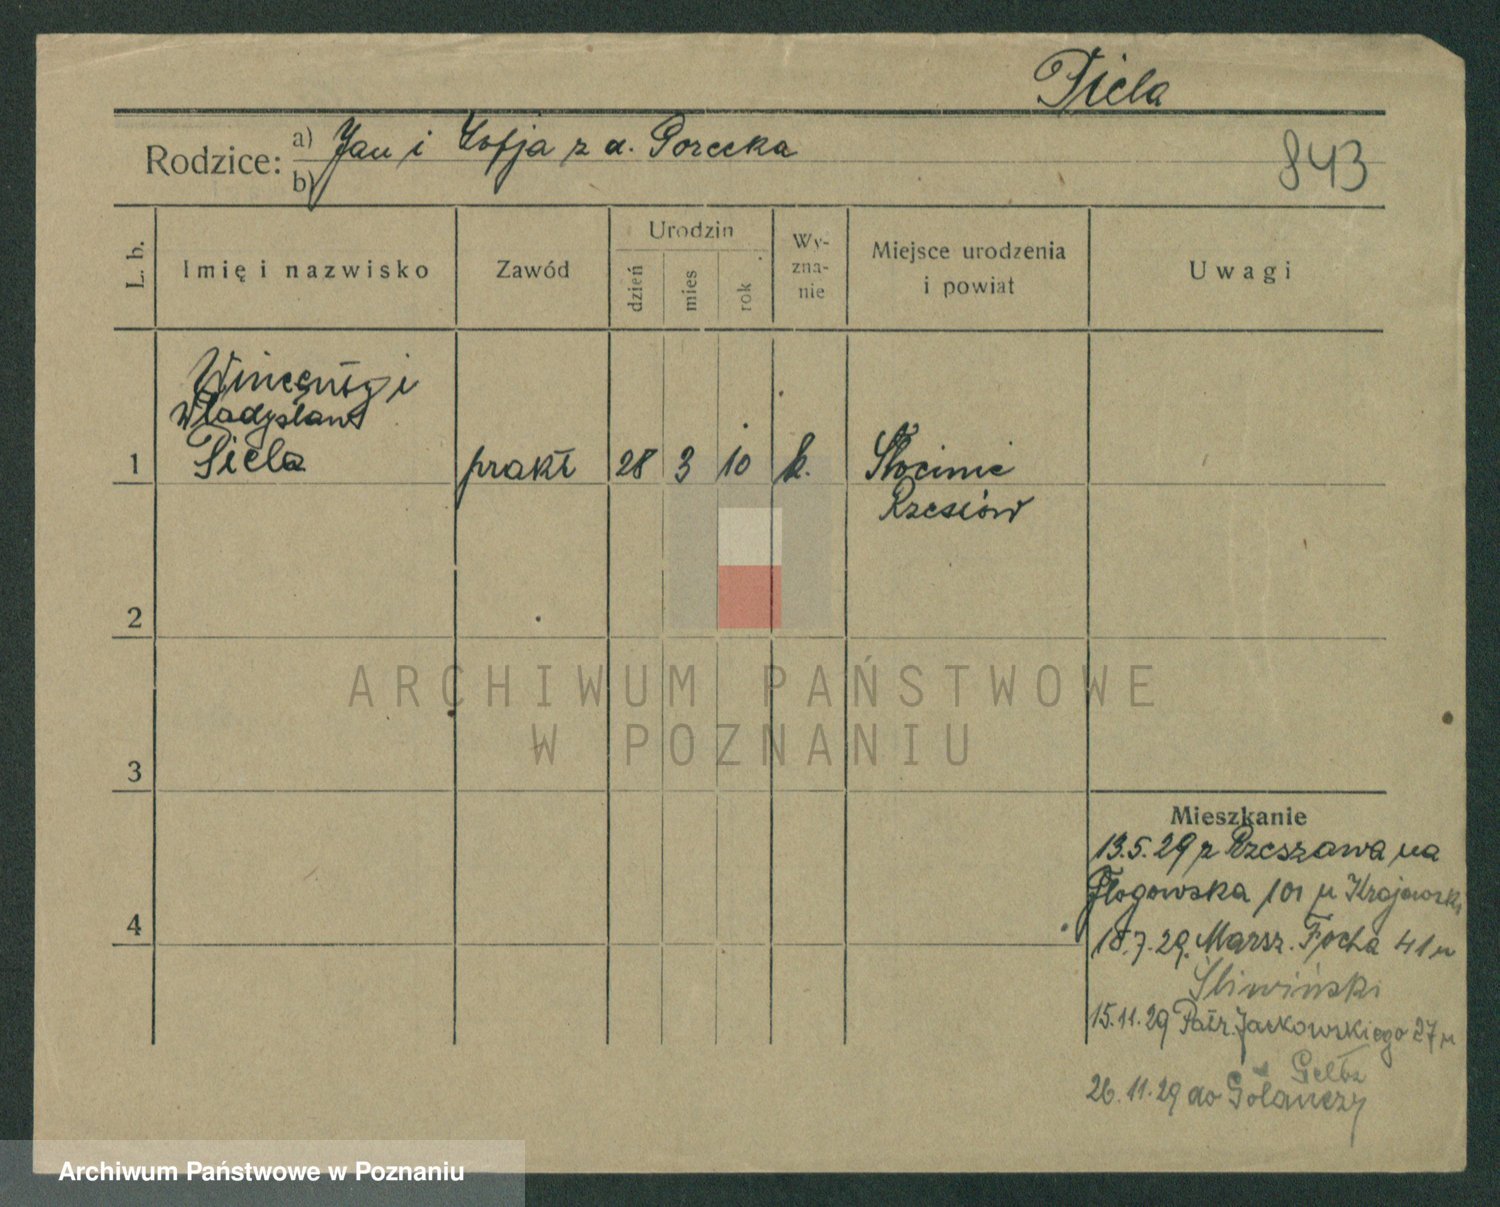 Piela
Rodzice: a) Jan i Zofja z d. Porecka
b)
843
L. b.
Imię i nazwisko
Zawód
Urodzin
dzień
mies
rok
Wy-
zna-
nie
Miejsce urodzenia
i powiat
Uwagi
Wincenty i
Władysław
1 Piela prakt 28 3 10 k. Słocinie
Rzeszów
2
3
4
Mieszkanie
13.5.29 z Rzeszowa na
Głogowska 101 u Krajewski
18.7.29. Marsz. Focha 41 u
Śliwiński
15.11.29 Patr. Jackowskiego 27 u
26.11.29 do Gołańczy
ARCHIWUM PAŃSTWOWE
W POZNANIU
Archiwum Państwowe w Poznaniu